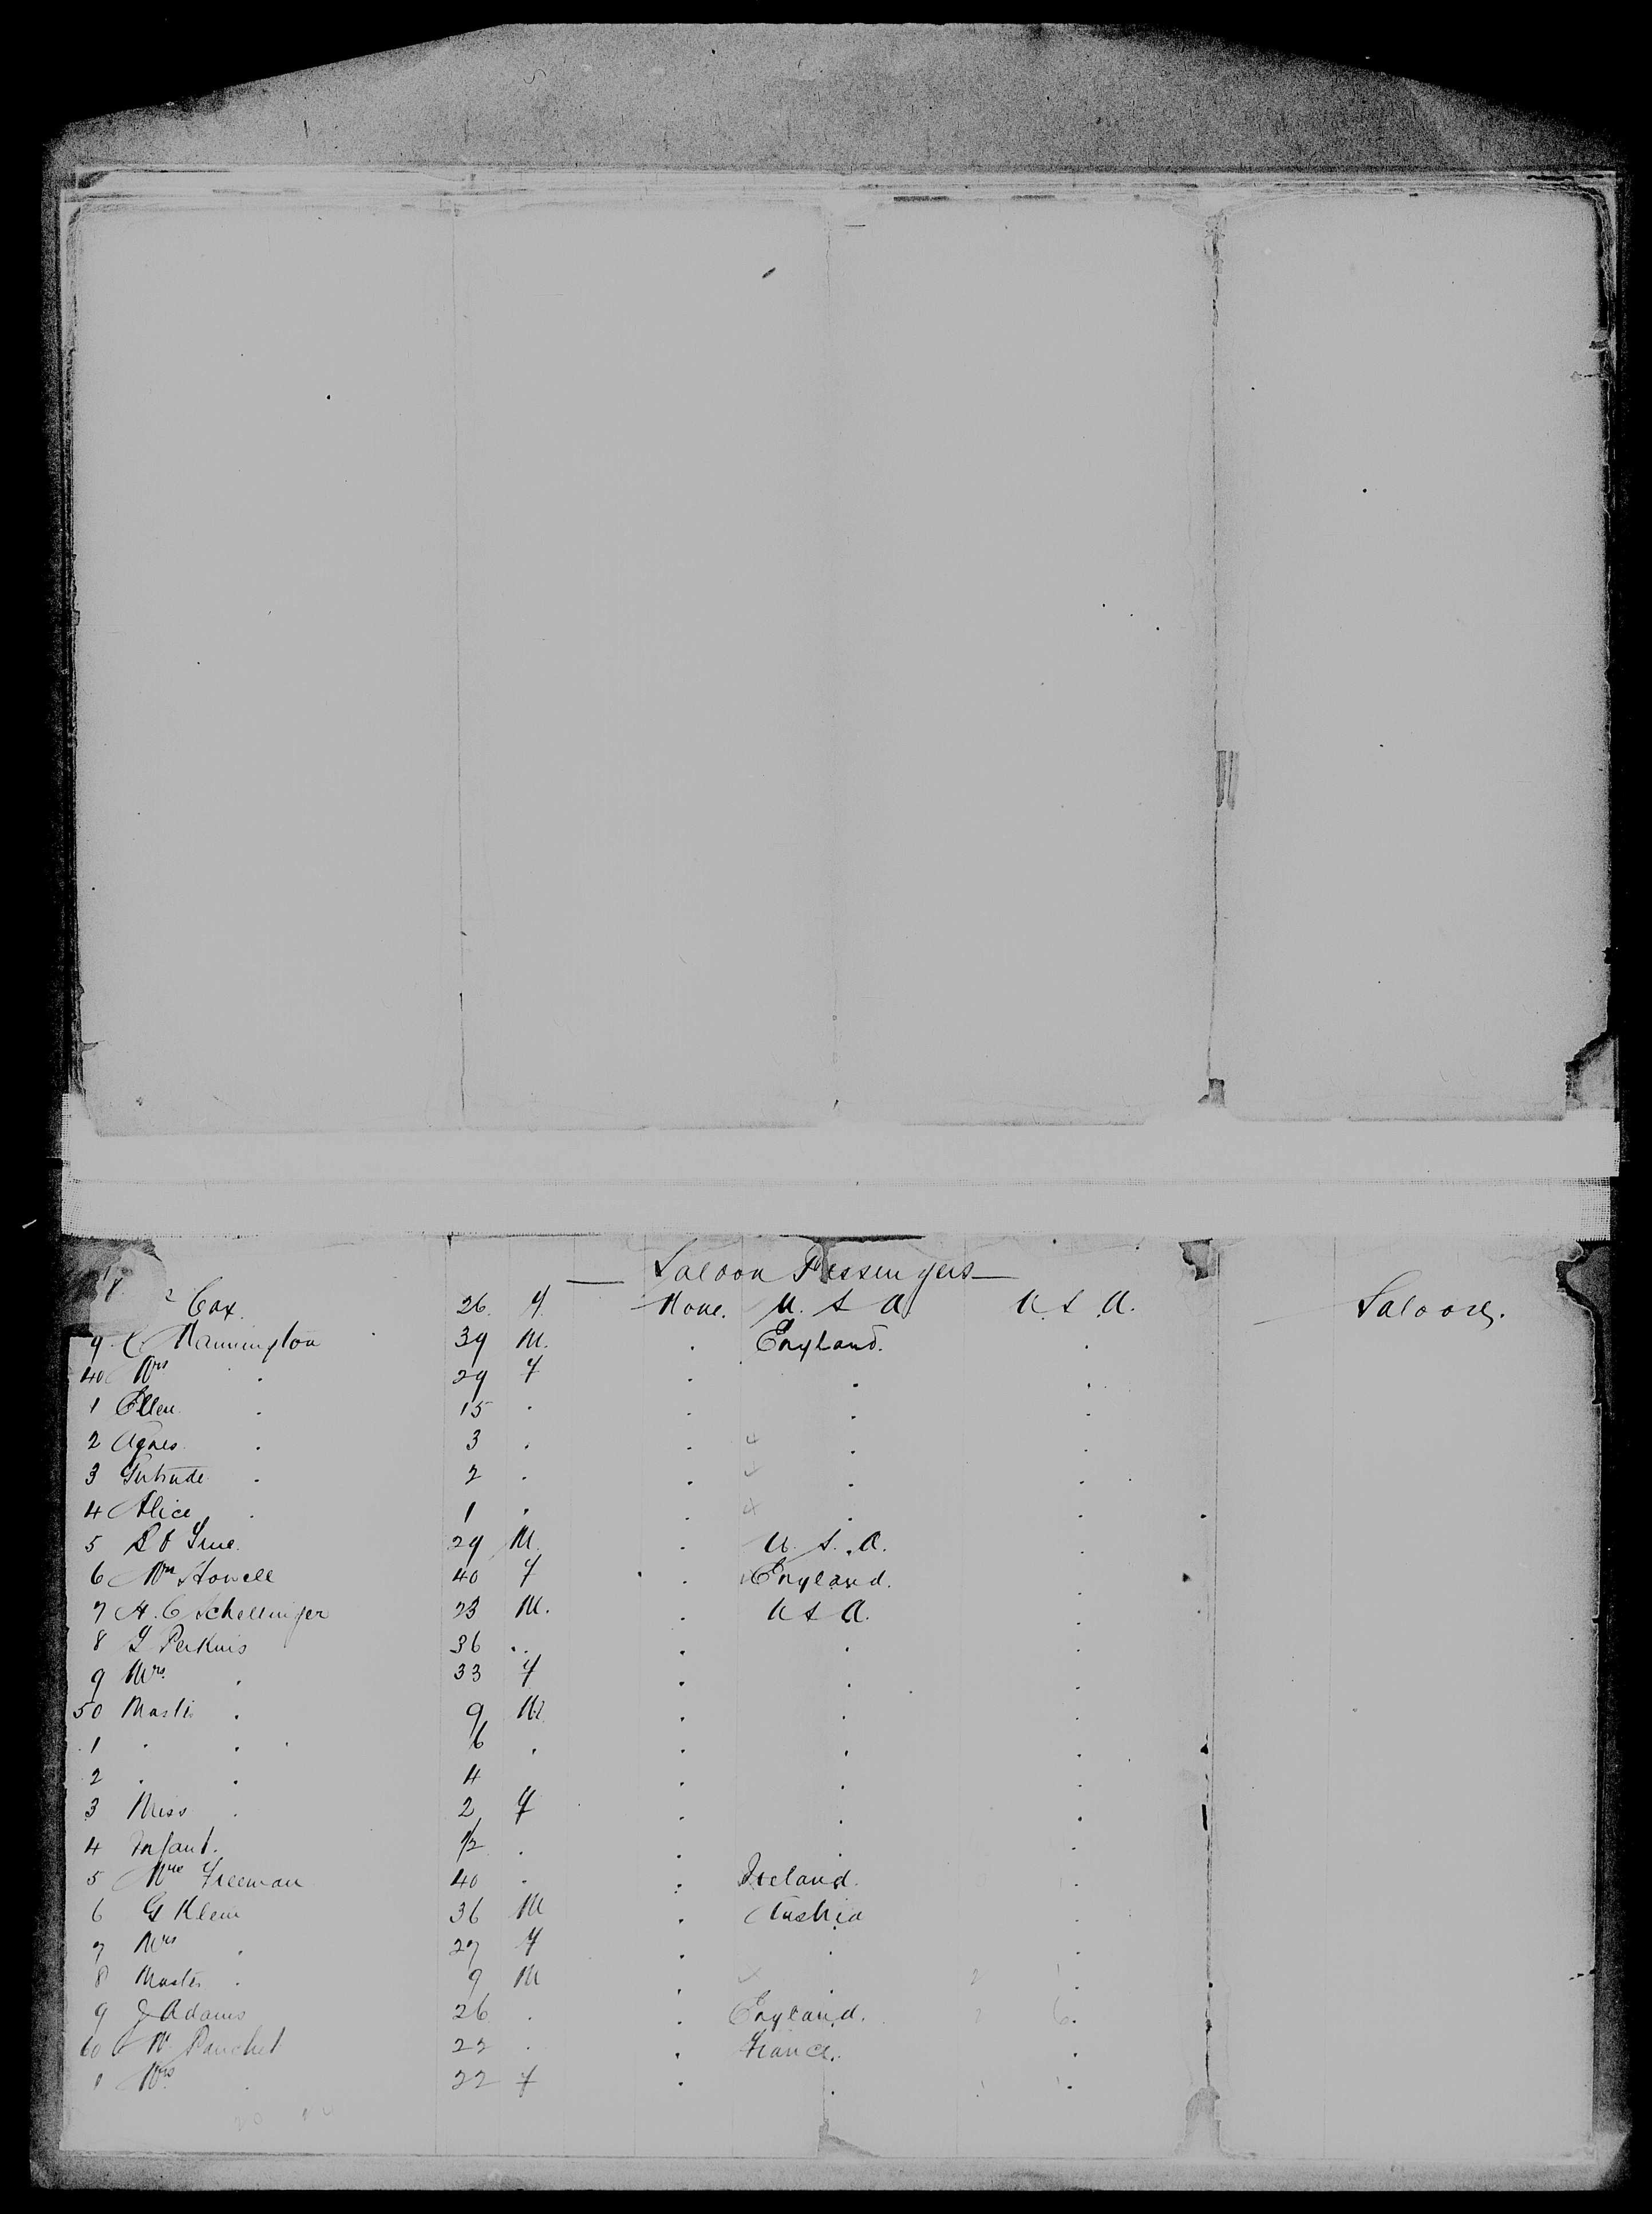 Saloon Passengers
Cox. 26. F. None. U. S. A. U. S. A. Saloon.
9 C Mannington 39 M. . England. .
40 Mrs . 29 F . . .
1 Ellen . 15 . . . .
2 Agnes . 3 . . . .
3 Gertrude . 2 . . . .
4 Alice . 1 . . . .
5 29 M. . U. S. A. .
6 Howell 40 F . England. .
7 H. C Schellinger 23 M. . U S A. .
8 Perkins 36 . . . .
9 Mrs. . 33 F . . .
50 Master . 9 M . . .
1 . . 6 . . . .
2 . . 4 . . .
3 Miss . 2 F . . .
4 Infant. 1/2 . . . .
5 Mrs Freeman 40 . . Ireland. .
6 G Klein 36 M . Austria .
7 Mrs . 27 F . . .
8 Master . 9 M . . .
9 J Adams 26 . . England. .
60 22 . . France. .
1 Mrs . 22 F . . .